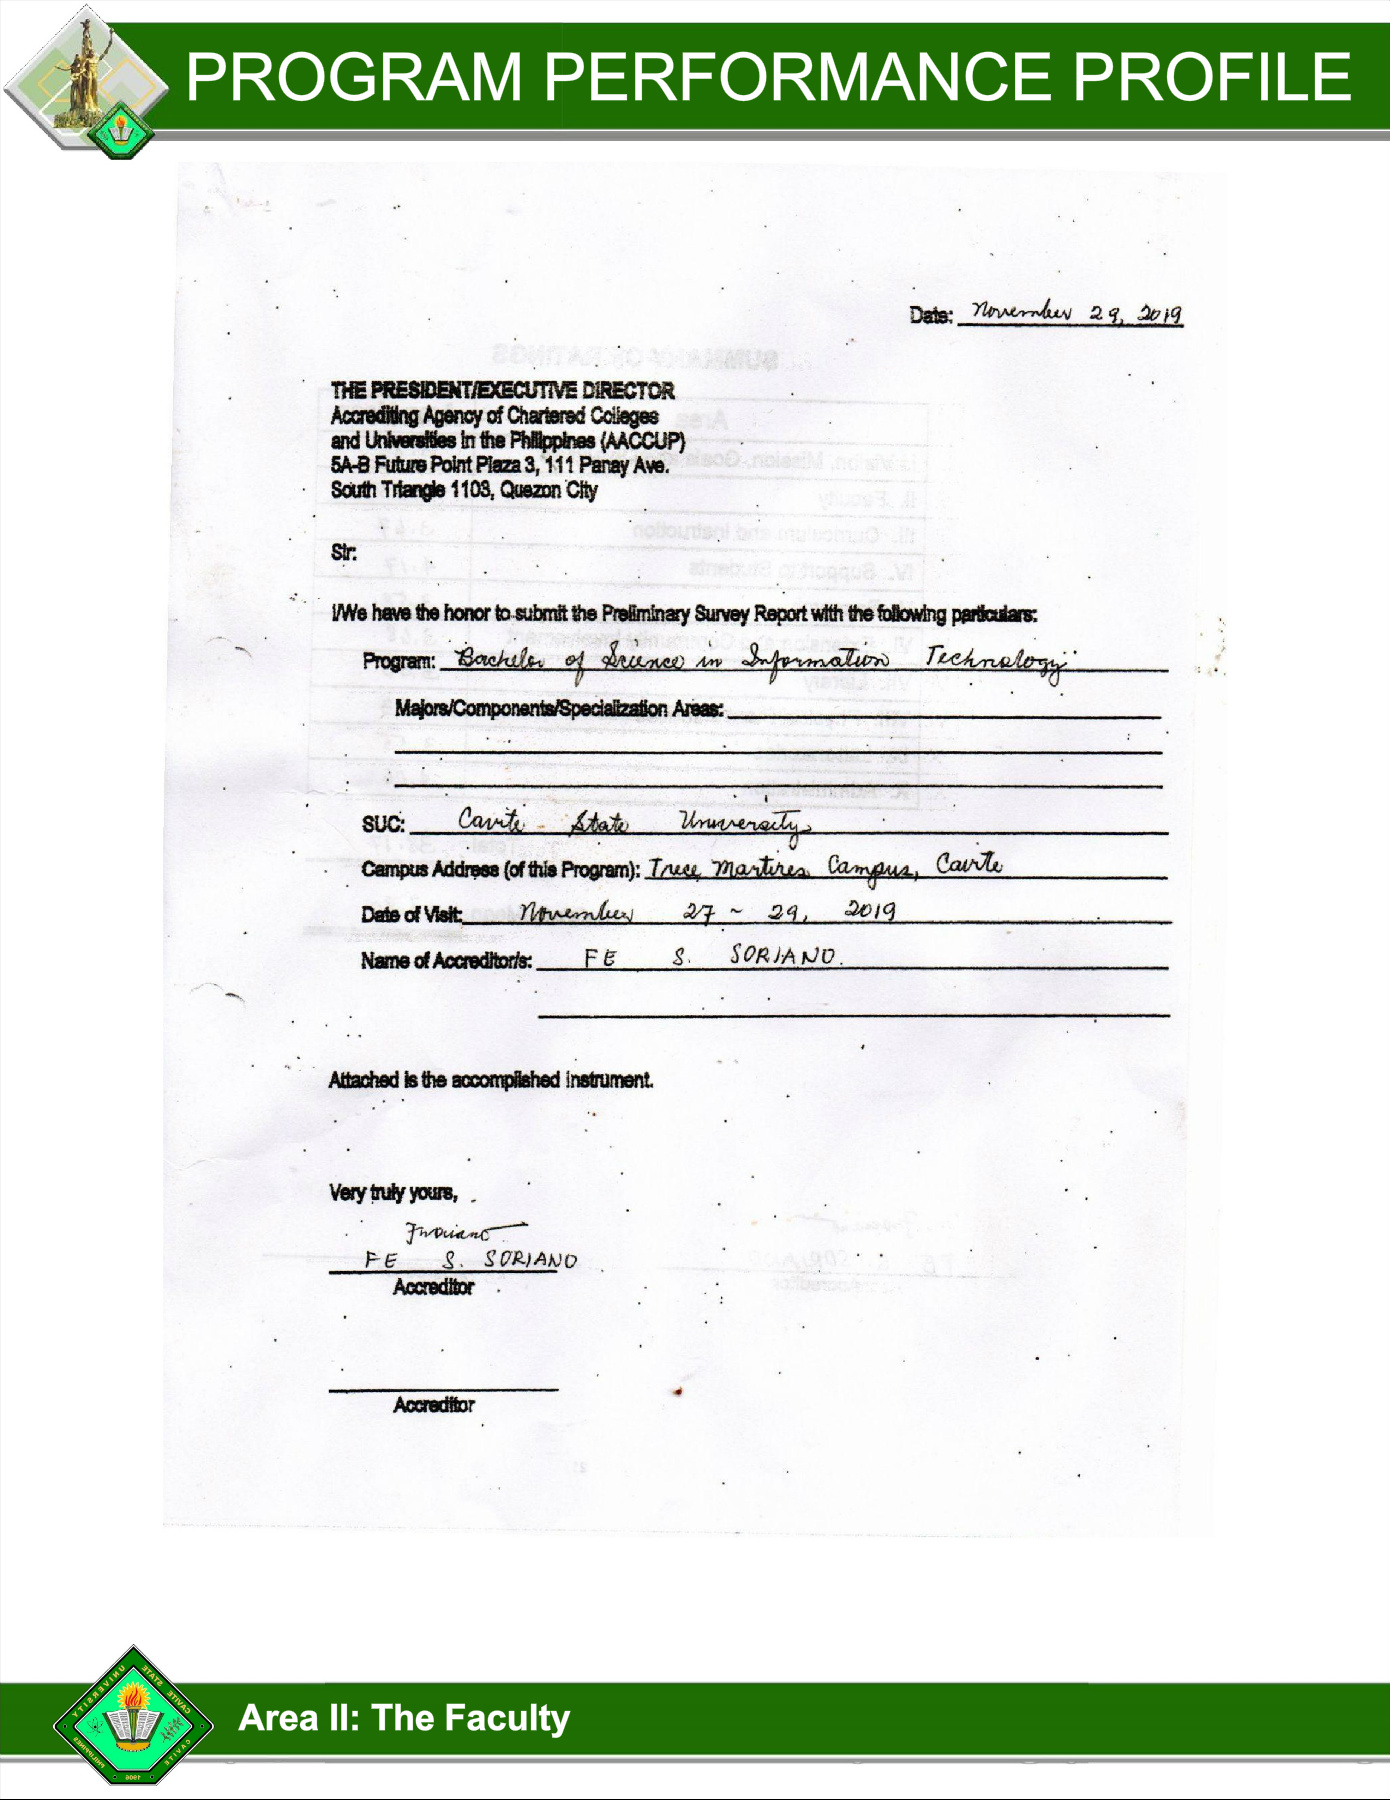 PROGRAM PERFORMANCE PROFILE
Date: November 29, 2019
THE PRESIDENT/EXECUTIVE DIRECTOR
Accrediting Agency of Chartered Colleges
and Universities in the Philippines (AACCUP)
5A-B Future Point Plaza 3, 111 Panay Ave.
South Triangle 1103, Quezon City
Sir:
I/We have the honor to submit the Preliminary Survey Report with the following particulars:
Program: Bachelor of Science in Information Technology
Majors/Components/Specialization Areas:
SUC: Cavite State University
Campus Address (of this Program): Trece Martires Campus, Cavite
Date of Visit: November 27 - 29, 2019
Name of Accreditor/s: FE S. SORIANO
Attached is the accomplished instrument.
Very truly yours,
FE S. SORIANO
Accreditor
Accreditor
Area II: The Faculty